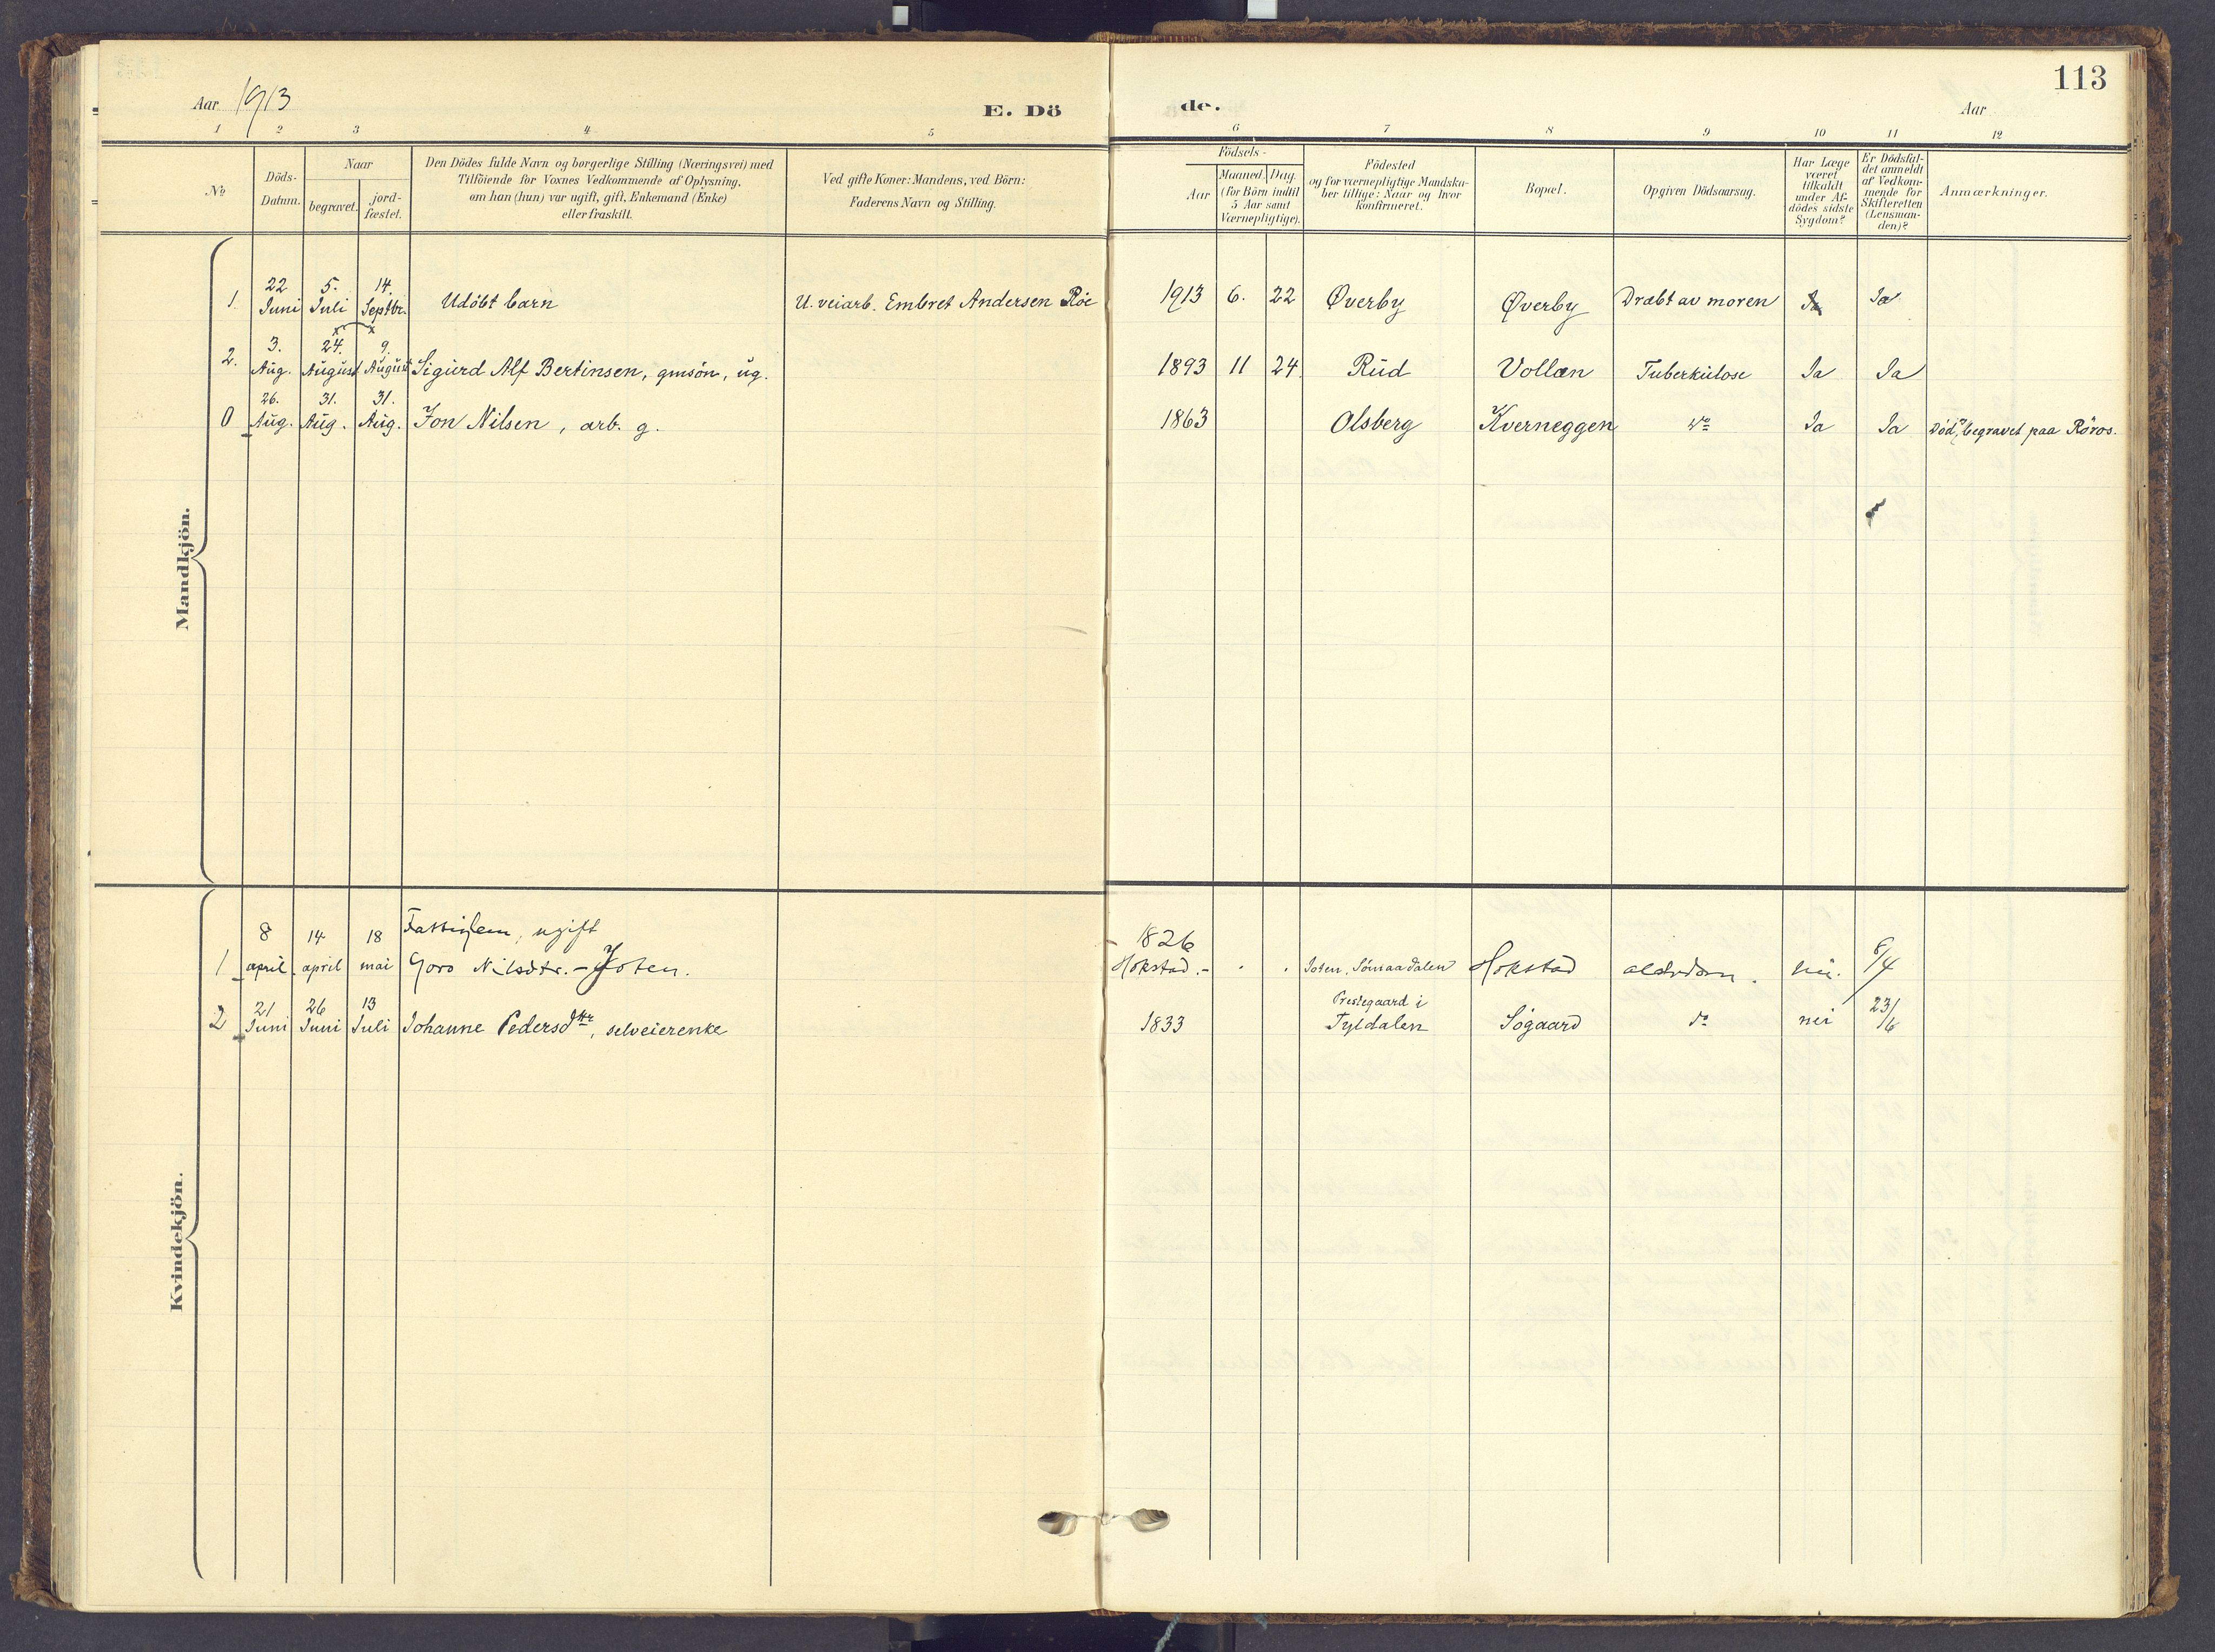 113
Aar 1913
E. Dö
de.
Aar
1 2 3 4 5 6 7 8 9 10 11 12
No
Döds-
Datum.
Naar
begravet.
jord-
fæstet.
Den Dödes fulde Navn og borgerlige Stilling (Næringsvei) med
Tilföiende for Voxnes Vedkommende af Oplysning,
om han (hun) var ugift, gift, Enkemand (Enke)
eller fraskilt.
Ved gifte Koner: Mandens, ved Börn:
Faderens Navn og Stilling.
Födsels-
Aar
Maaned. Dag.
(for Börn indtil
5 Aar samt
Værnepligtige).
Födested
og for værnepligtige Mandska-
ber tillige: Naar og hvor
konfirmeret.
Bopæl.
Opgiven Dödsaarsag.
Har Læge
været
tilkaldt
under Af-
dödes sidste
Sygdom?
Er Dödsfal-
det anmeldt
af Vedkom-
mende for
Skifteretten
(Lensman-
den)?
Anmærkninger.
Mandkjön.
22 5. 14.
1. Juni Juli Septbr. Udöbt barn U. veiarb. Embret Andersen Röe 1913 6. 22 Øverby Øverby Dræbt av moren Ja
x x
3. 24. 9.
2. Aug. August August Sigurd Alf Bertinsen, gmsön, ug. 1893 11 24 Rud Vollan Tuberkulose Ja Ja
26. 31. 31.
0 Aug. Aug. Aug. Jon Nilsen, arb. g. 1863 Olsberg Kverneggen do Ja Ja Död, begravet paa Röros.
Kvindekjön.
8 14 18 ugift 1826
1 april april mai Goro Nilsdtr. - Joten. Hokstad.- Joten, Sömaadalen Hokstad alderdom. nei. 8/4
21 26 13 Prestegaard i
2 Juni Juni Juli Johanne Pedersdtr, selveierenke 1833 Tyldalen Sögaard do nei 23/6